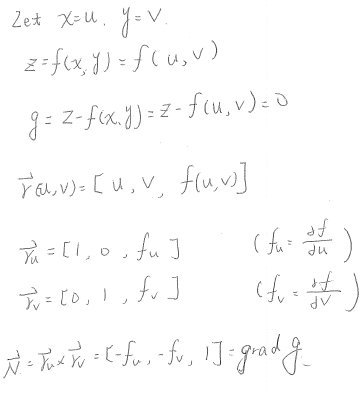 Let x=u, y=v.
z=f(x,y)=f(u,v)
g=z-f(x,y)=z-f(u,v)=0
r⃗(u,v)=[u, v, f(u,v)]
r⃗ᵤ=[1, 0, fᵤ] (fᵤ=∂f/∂u)
r⃗ᵥ=[0, 1, fᵥ] (fᵥ=∂f/∂v)
N⃗=r⃗ᵤ×r⃗ᵥ=[-fᵤ, -fᵥ, 1]=grad g